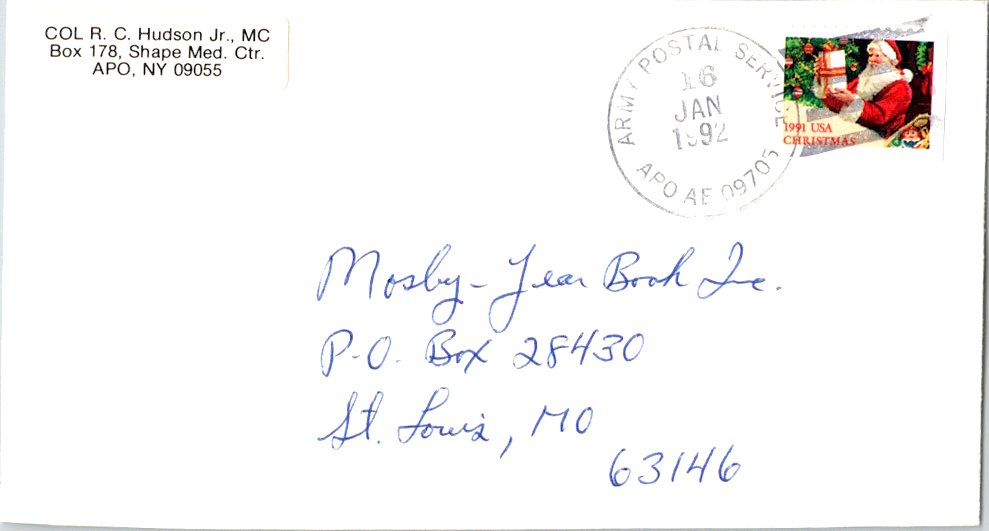 COL R. C. Hudson Jr., MC
Box 178, Shape Med. Ctr.
APO, NY 09055
ARMY POSTAL SERVICE
16
JAN
1992
APO AE 09705
1991 USA
CHRISTMAS
Mosby-Year Book Inc.
P.O. Box 28430
St. Louis, MO
63146